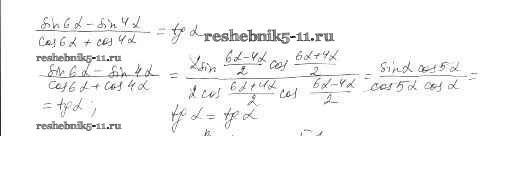 (sin6α − sin4α)/(cos6α + cos4α) = tg α
reshebnik5-11.ru
reshebnik5-11.ru
(sin6α − sin4α)/(cos6α + cos4α) = (2sin (6α−4α)/2 cos (6α+4α)/2)/(2cos (6α+4α)/2 cos (6α−4α)/2) = (sinα cos5α)/(cos5α cosα) =
= tgα; tgα = tgα
reshebnik5-11.ru